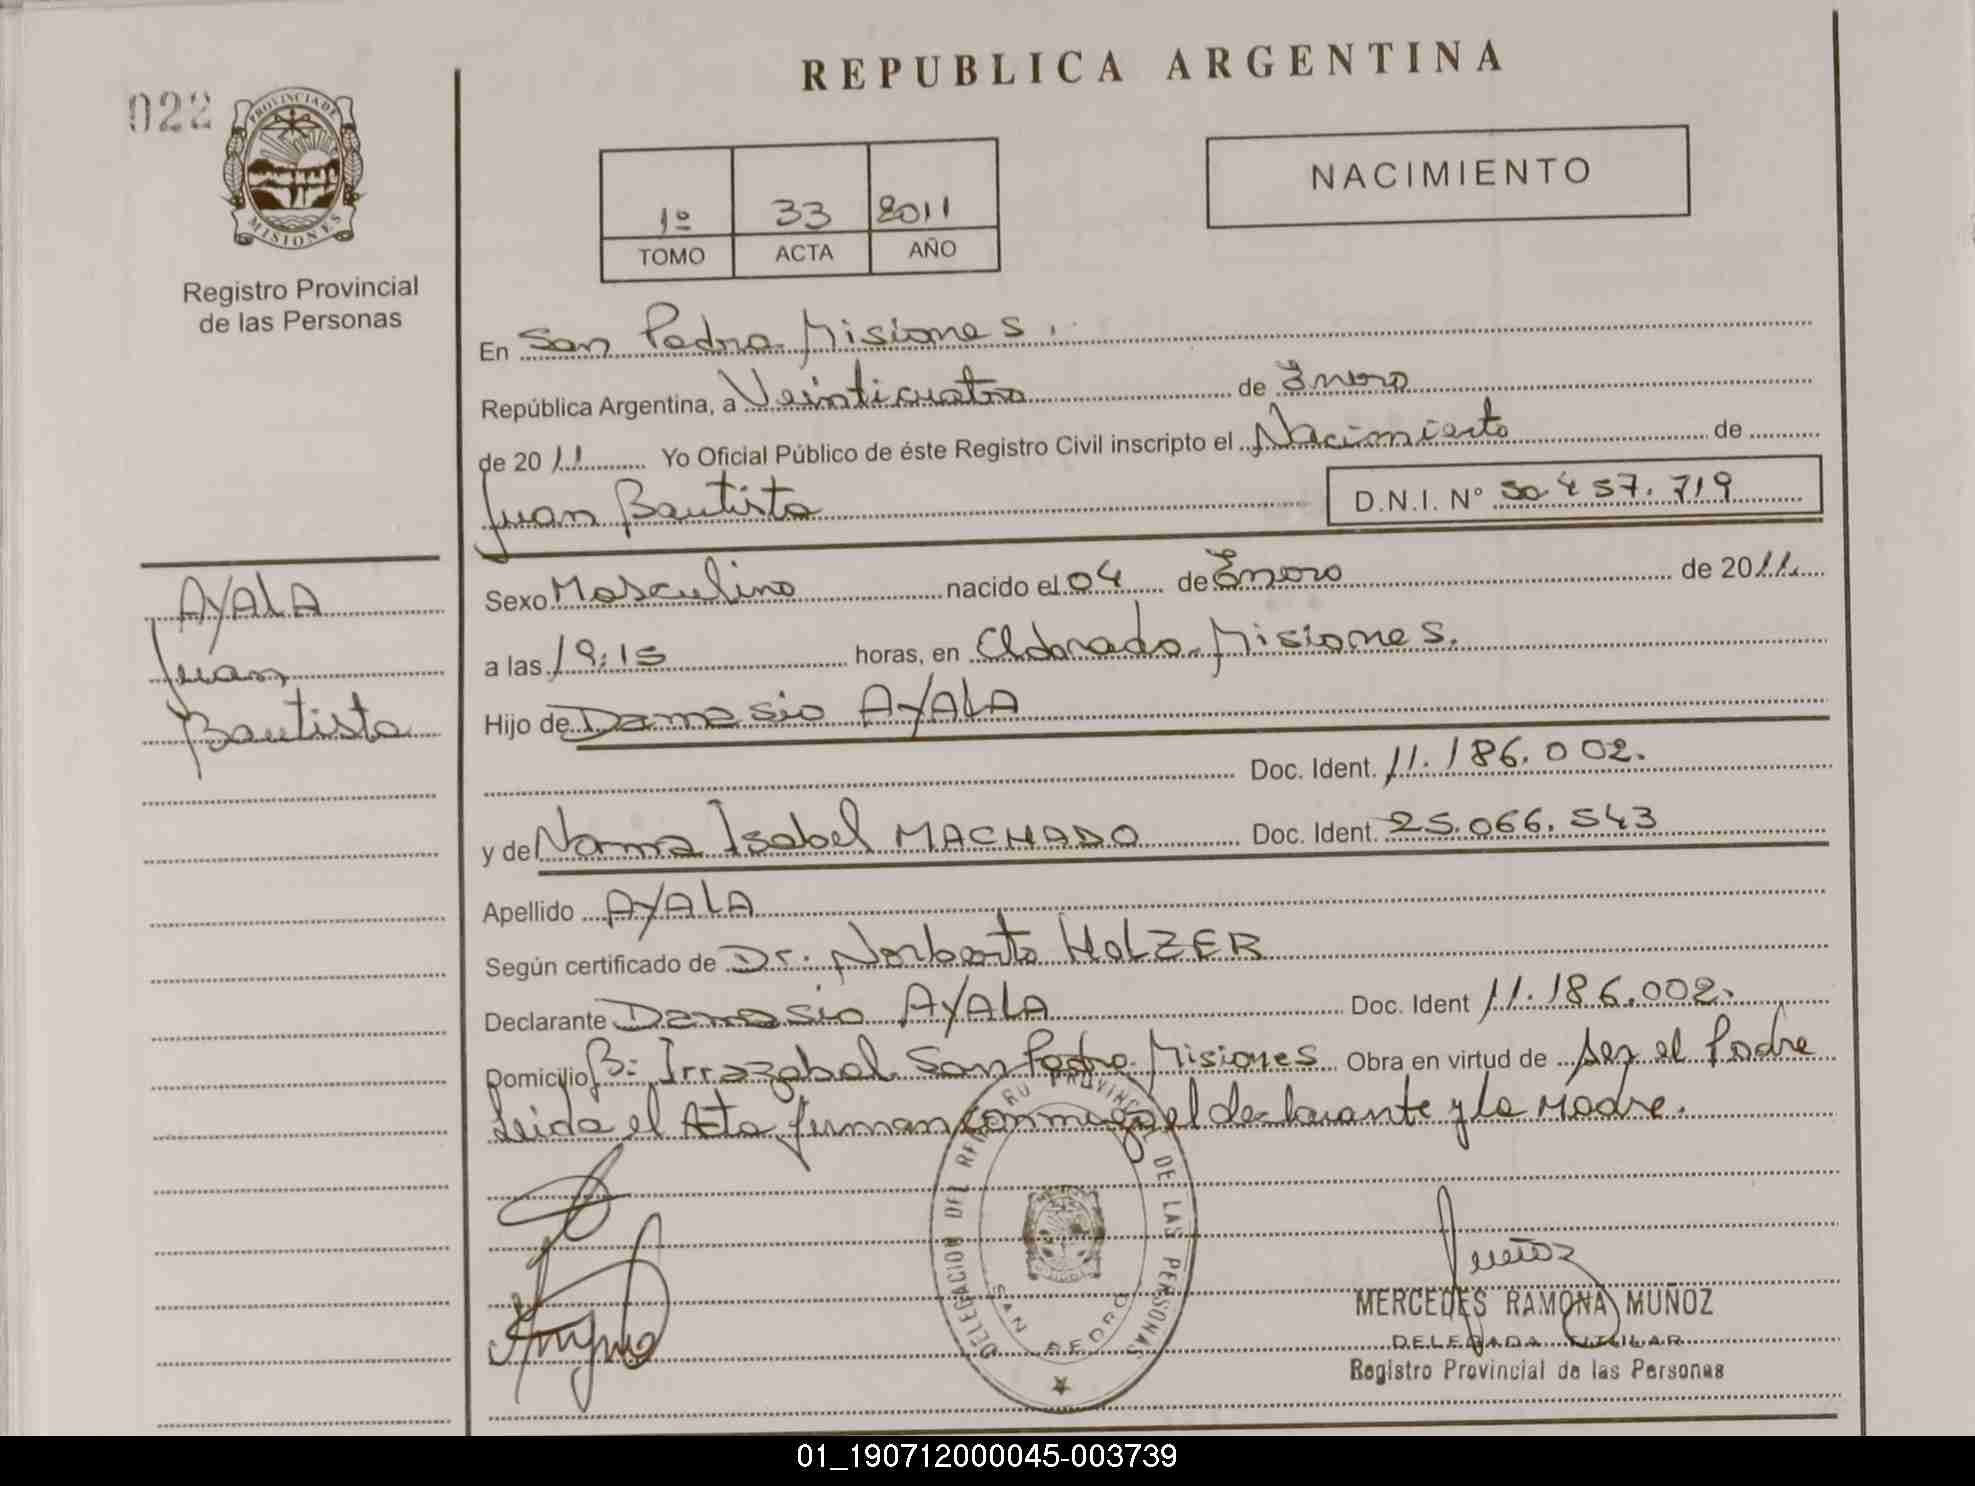 REPUBLICA ARGENTINA
022
PROVINCIA DE
MISIONES
Registro Provincial
de las Personas
NACIMIENTO
1º 33 2011
TOMO ACTA AÑO
En San Pedro Misiones.
República Argentina, a Veinticuatro de Enero
de 2011 Yo Oficial Público de éste Registro Civil inscripto el Nacimiento de
Juan Bautista D.N.I. Nº 50.457.719
AYALA
Juan
Bautista
Sexo Masculino nacido el 04 de Enero de 2011
a las 19:15 horas, en Eldorado Misiones.
Hijo de Damasio AYALA
Doc. Ident. 11.186.002.
y de Norma Isabel MACHADO Doc. Ident. 25.066.543
Apellido AYALA
Según certificado de Dr. Norberto HOLZER
Declarante Damasio AYALA Doc. Ident 11.186.002.
Domicilio B: Irrazabal San Pedro Misiones Obra en virtud de ser el Padre
Leida el Acta firman conmigo el declarante y la Madre.
DELEGACION DEL REGISTRO PROVINCIAL DE LAS PERSONAS
SAN PEDRO
Muñoz
MERCEDES RAMONA MUÑOZ
DELEGADA TITULAR
Registro Provincial de las Personas
01_190712000045-003739